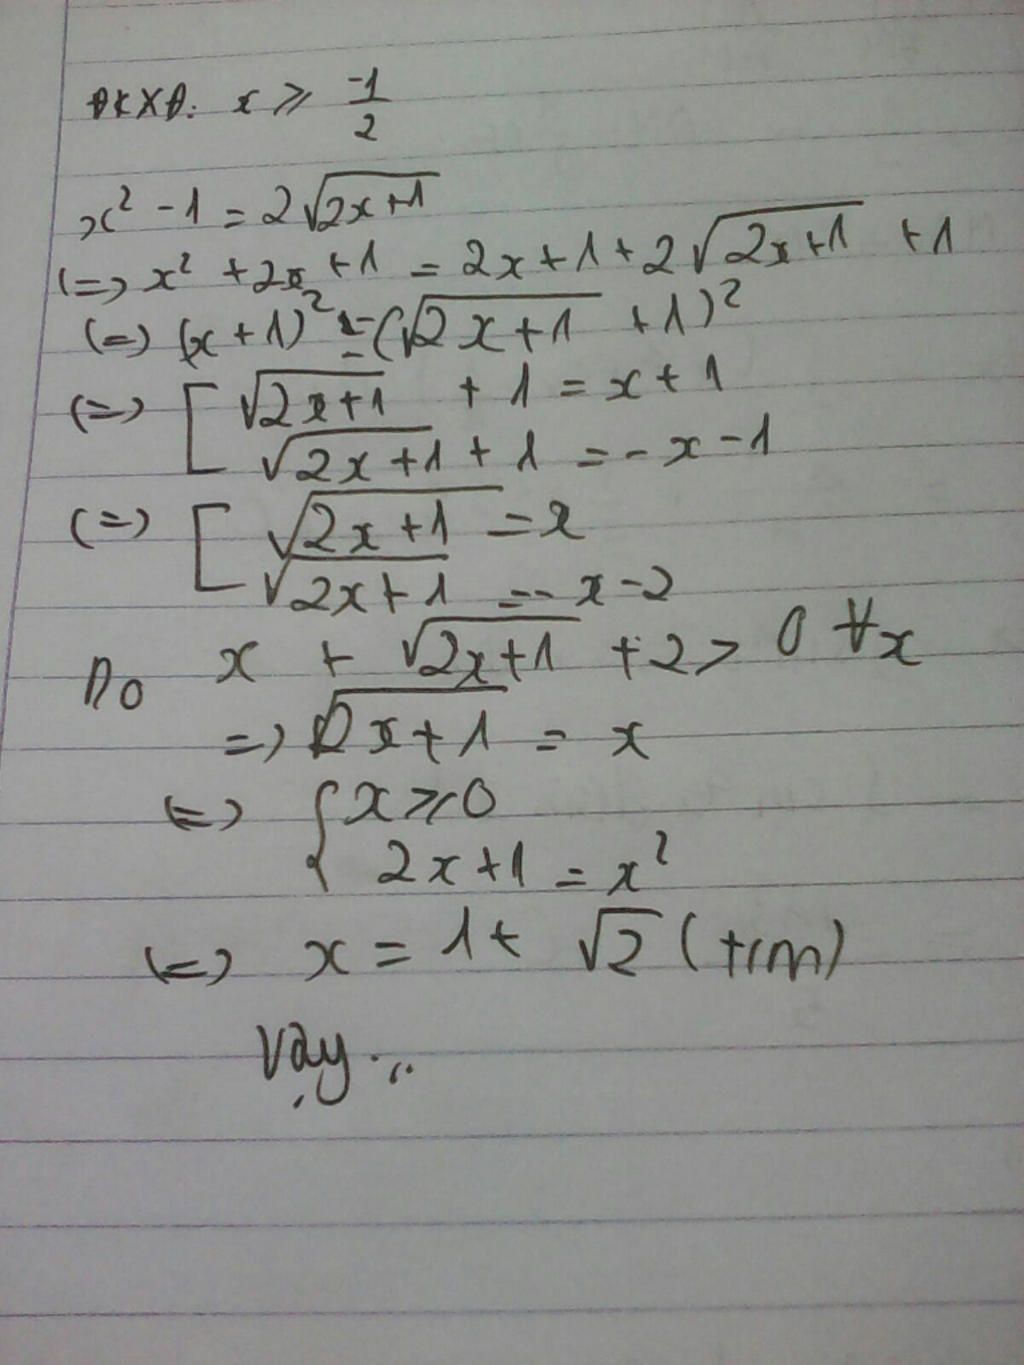 ĐKXĐ: x ⩾ -1/2
x² - 1 = 2√(2x+1)
(=) x² + 2x + 1 = 2x + 1 + 2√(2x+1) + 1
(=) (x + 1)² = (√(2x+1) + 1)²
(=) [ √(2x+1) + 1 = x + 1
√(2x+1) + 1 = - x - 1
(=) [ √(2x+1) = x
√(2x+1) = - x - 2
Do x + √(2x+1) + 2 > 0 ∀x
=) √(2x+1) = x
(=) { x ⩾ 0
2x + 1 = x²
(=) x = 1 + √2 (t/m)
Vậy...